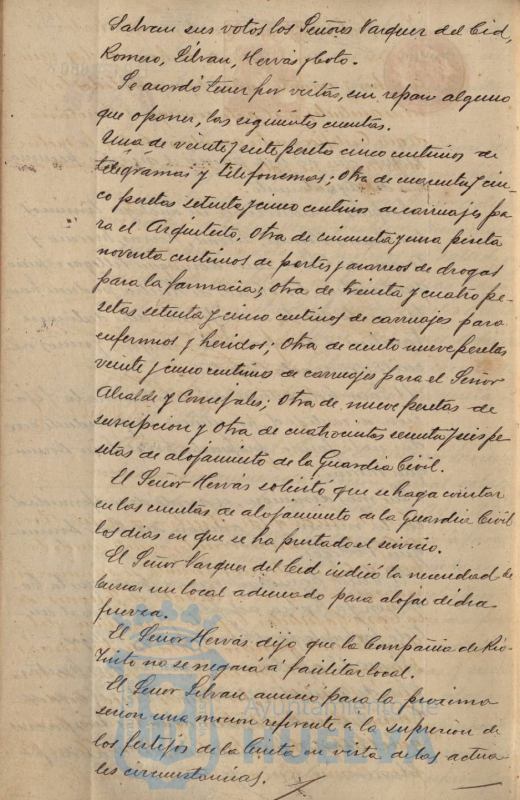 Salvan sus votos los Señores Vazquez del Cid,
Romero, Silvan, Hervás y Coto.
Se acordó tener por vistas, sin reparo alguno
que oponer, las siguientes cuentas.
Una de veinte y siete pesetas cinco centimos de
telegramas y telefonemas; Otra de cuarenta y cin-
co pesetas setenta y cinco centimos de carruajes pa-
ra el Arquitecto. Otra de cincuenta y una peseta
noventa centimos de portes y acarreos de drogas
para la farmacia; Otra de treinta y cuatro pe-
setas setenta y cinco centimos de carruajes para
enfermos y heridos; Otra de ciento nueve pesetas
veinte y cinco centimos de carruajes para el Señor
Alcalde y Concejales; Otra de nueve pesetas de
suscripcion y Otra de cuatrocientas sesenta y seis pe-
setas de alojamiento de la Guardia Civil.
El Señor Hervás solicitó que se haga constar
en las cuentas de alojamiento de la Guardia Civil
los dias en que se ha prestado el servicio.
El Señor Vazquez del Cid indicó la necesidad de
buscar un local adecuado para alojar dicha
fuerza.
El Señor Hervás dijo que la Compañia de Rio-
Tinto no se negará á facilitar local.
El Señor Silvan anució para la proxima
sesion una mocion referente a la supresion de
los festejos de la Cinta en vista de las actua-
les circunstancias.
Ayuntamiento de
HUELVA